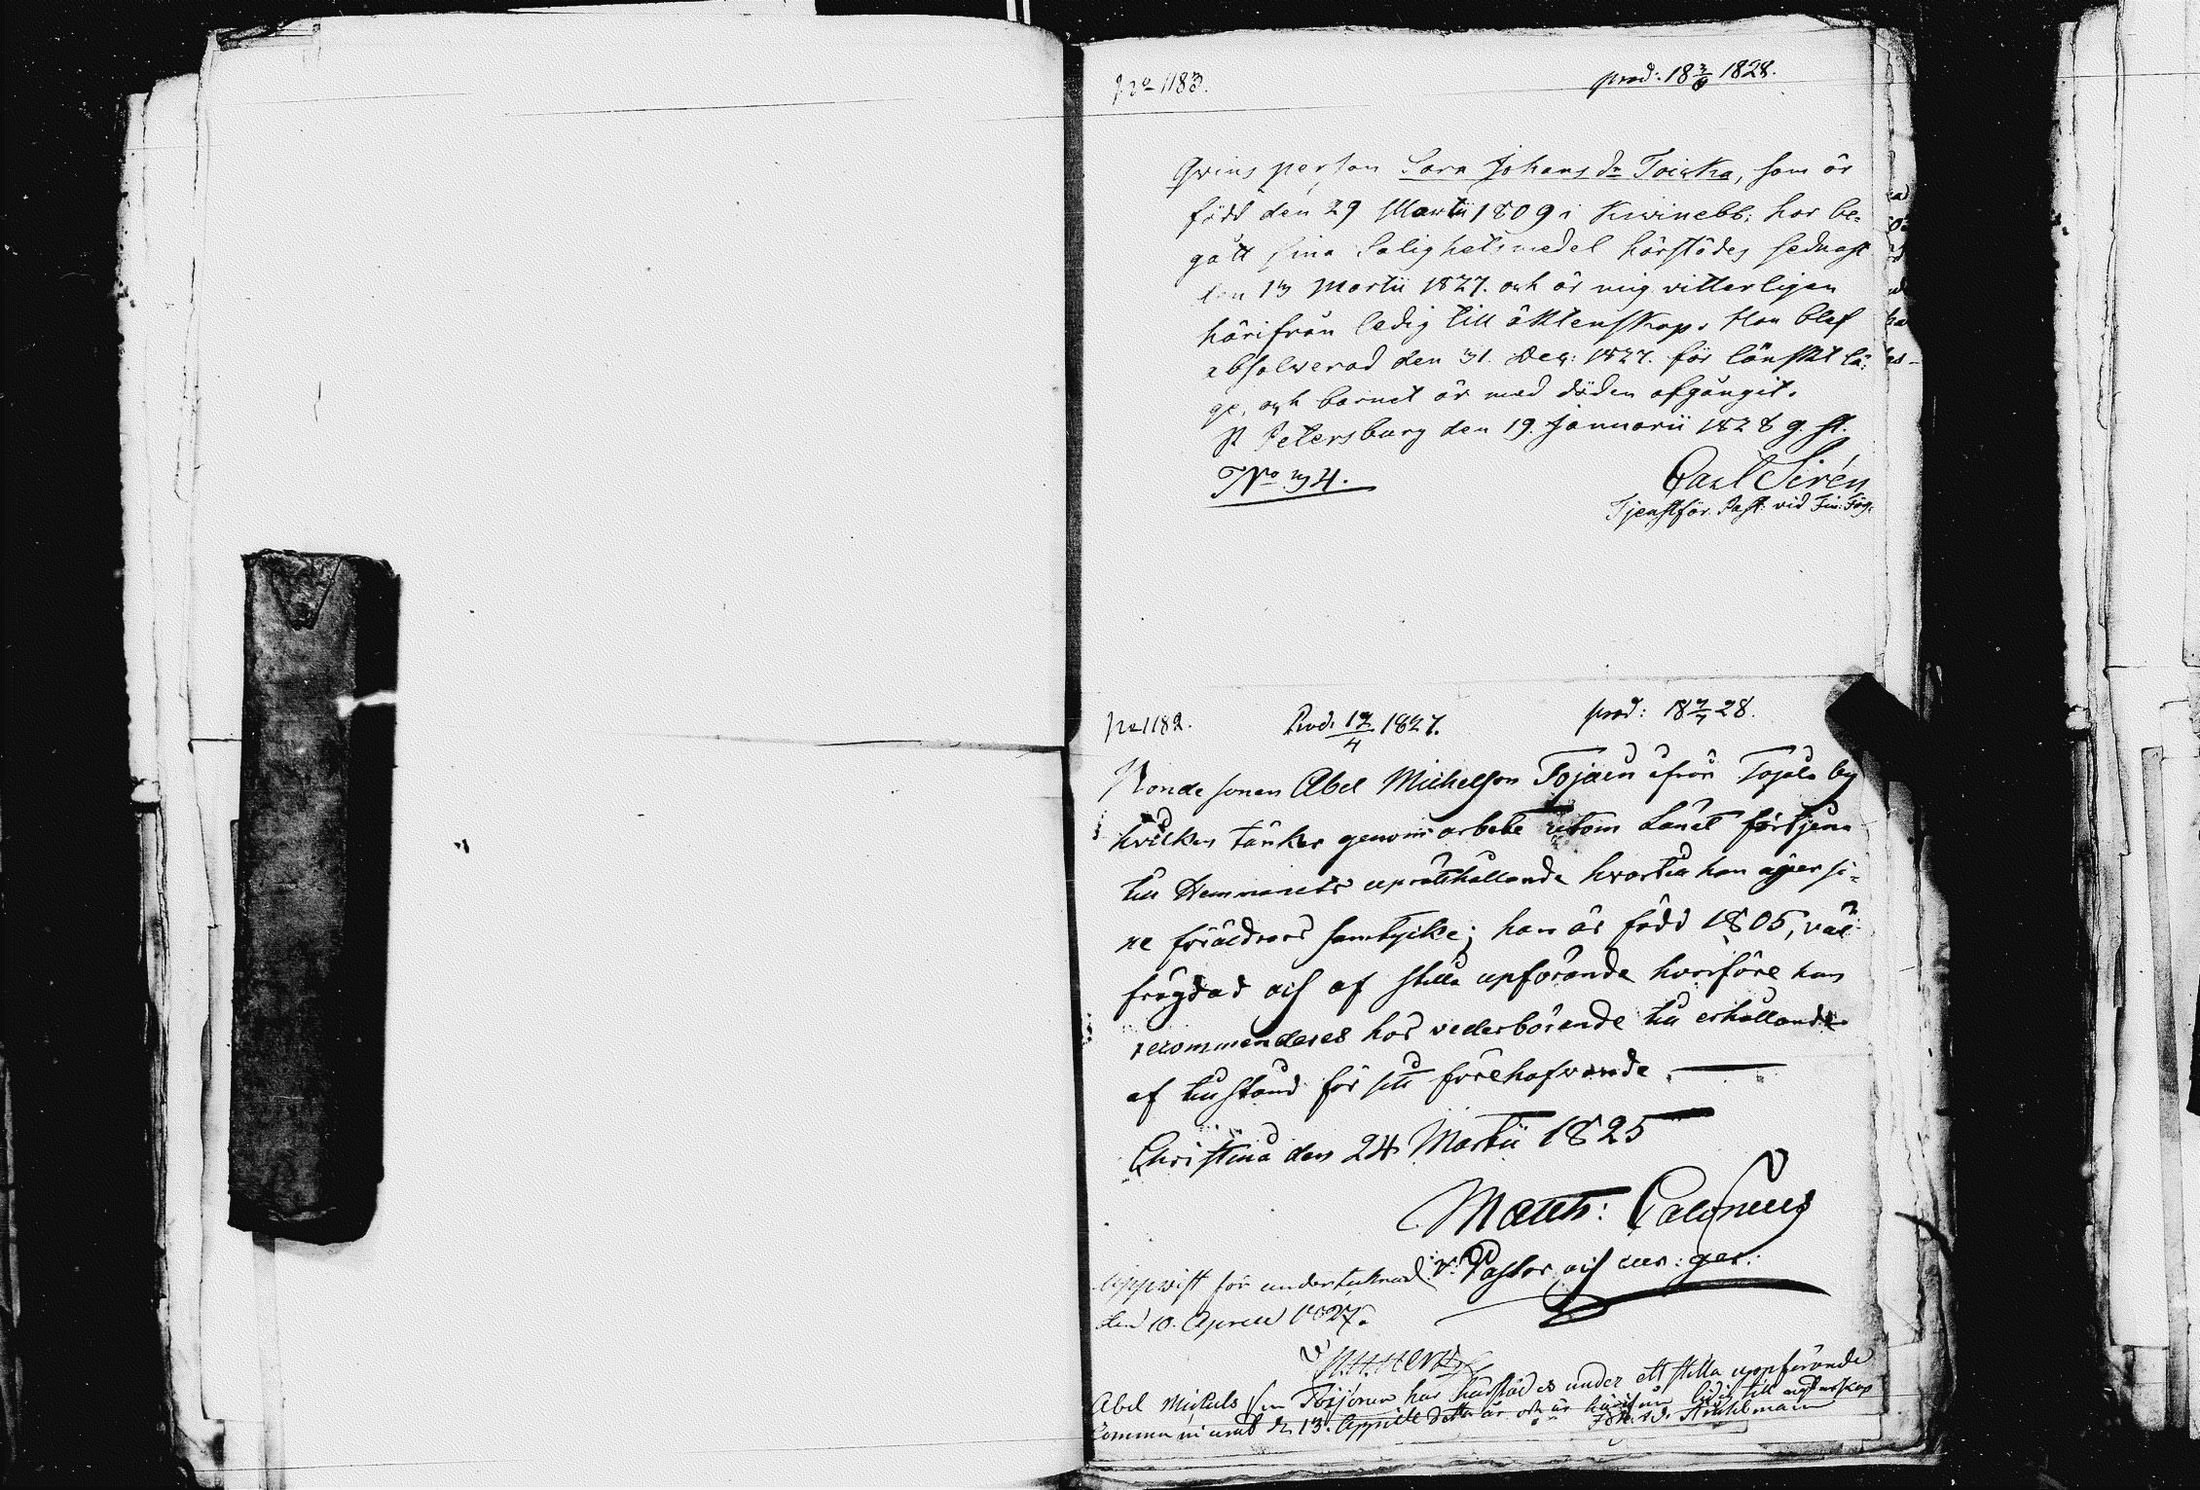 No 1183. prod: 18 3/8 1828.
Qvins person Sara Johans dr Toicka, som är
född den 29 Martii 1809 i Kivinebb; har be-
gått sina Salighetsmedel härstädes sednast
den 13 Martii 1827. och är mig vitterligen
härifrån ledig till äktenskap. Hon blef
absolverad den 31. Dec: 1827. för lönskt lä-
ge, och barnet är med döden afgångit.
St Petersburg den 19. Januarii 1828 g. st.
No 34.
Carl Sirén
Tjenstför. Past. vid Fin: Förs.
No 1182. Prod. 17/4 1827. prod: 18 2/7 28.
Bonde sonen Abel Michelson Tojaen ifrån Tojala by
hvilken tänker genom arbete utom Länet förtjena
till Hemmanets uprätthållande hvartill han äger si-
ne föräldrars samtycke; han är född 1805, väl
frägdad och af stilla upförande hvarföre han
recommenderes hos vederbörande till erhållande
af tillstånd för sitt förehafvande.
Christina den 24 Martii 1825
Matth: Calonius
v. Pastor och
Uppvist för undertecknad
den 10. Aprill 1827.
Abel Mickels son har härstädes under ett stilla uppförande
Communicerat d. 13. Aprill detta år och är härifrån ledig till äktenskap